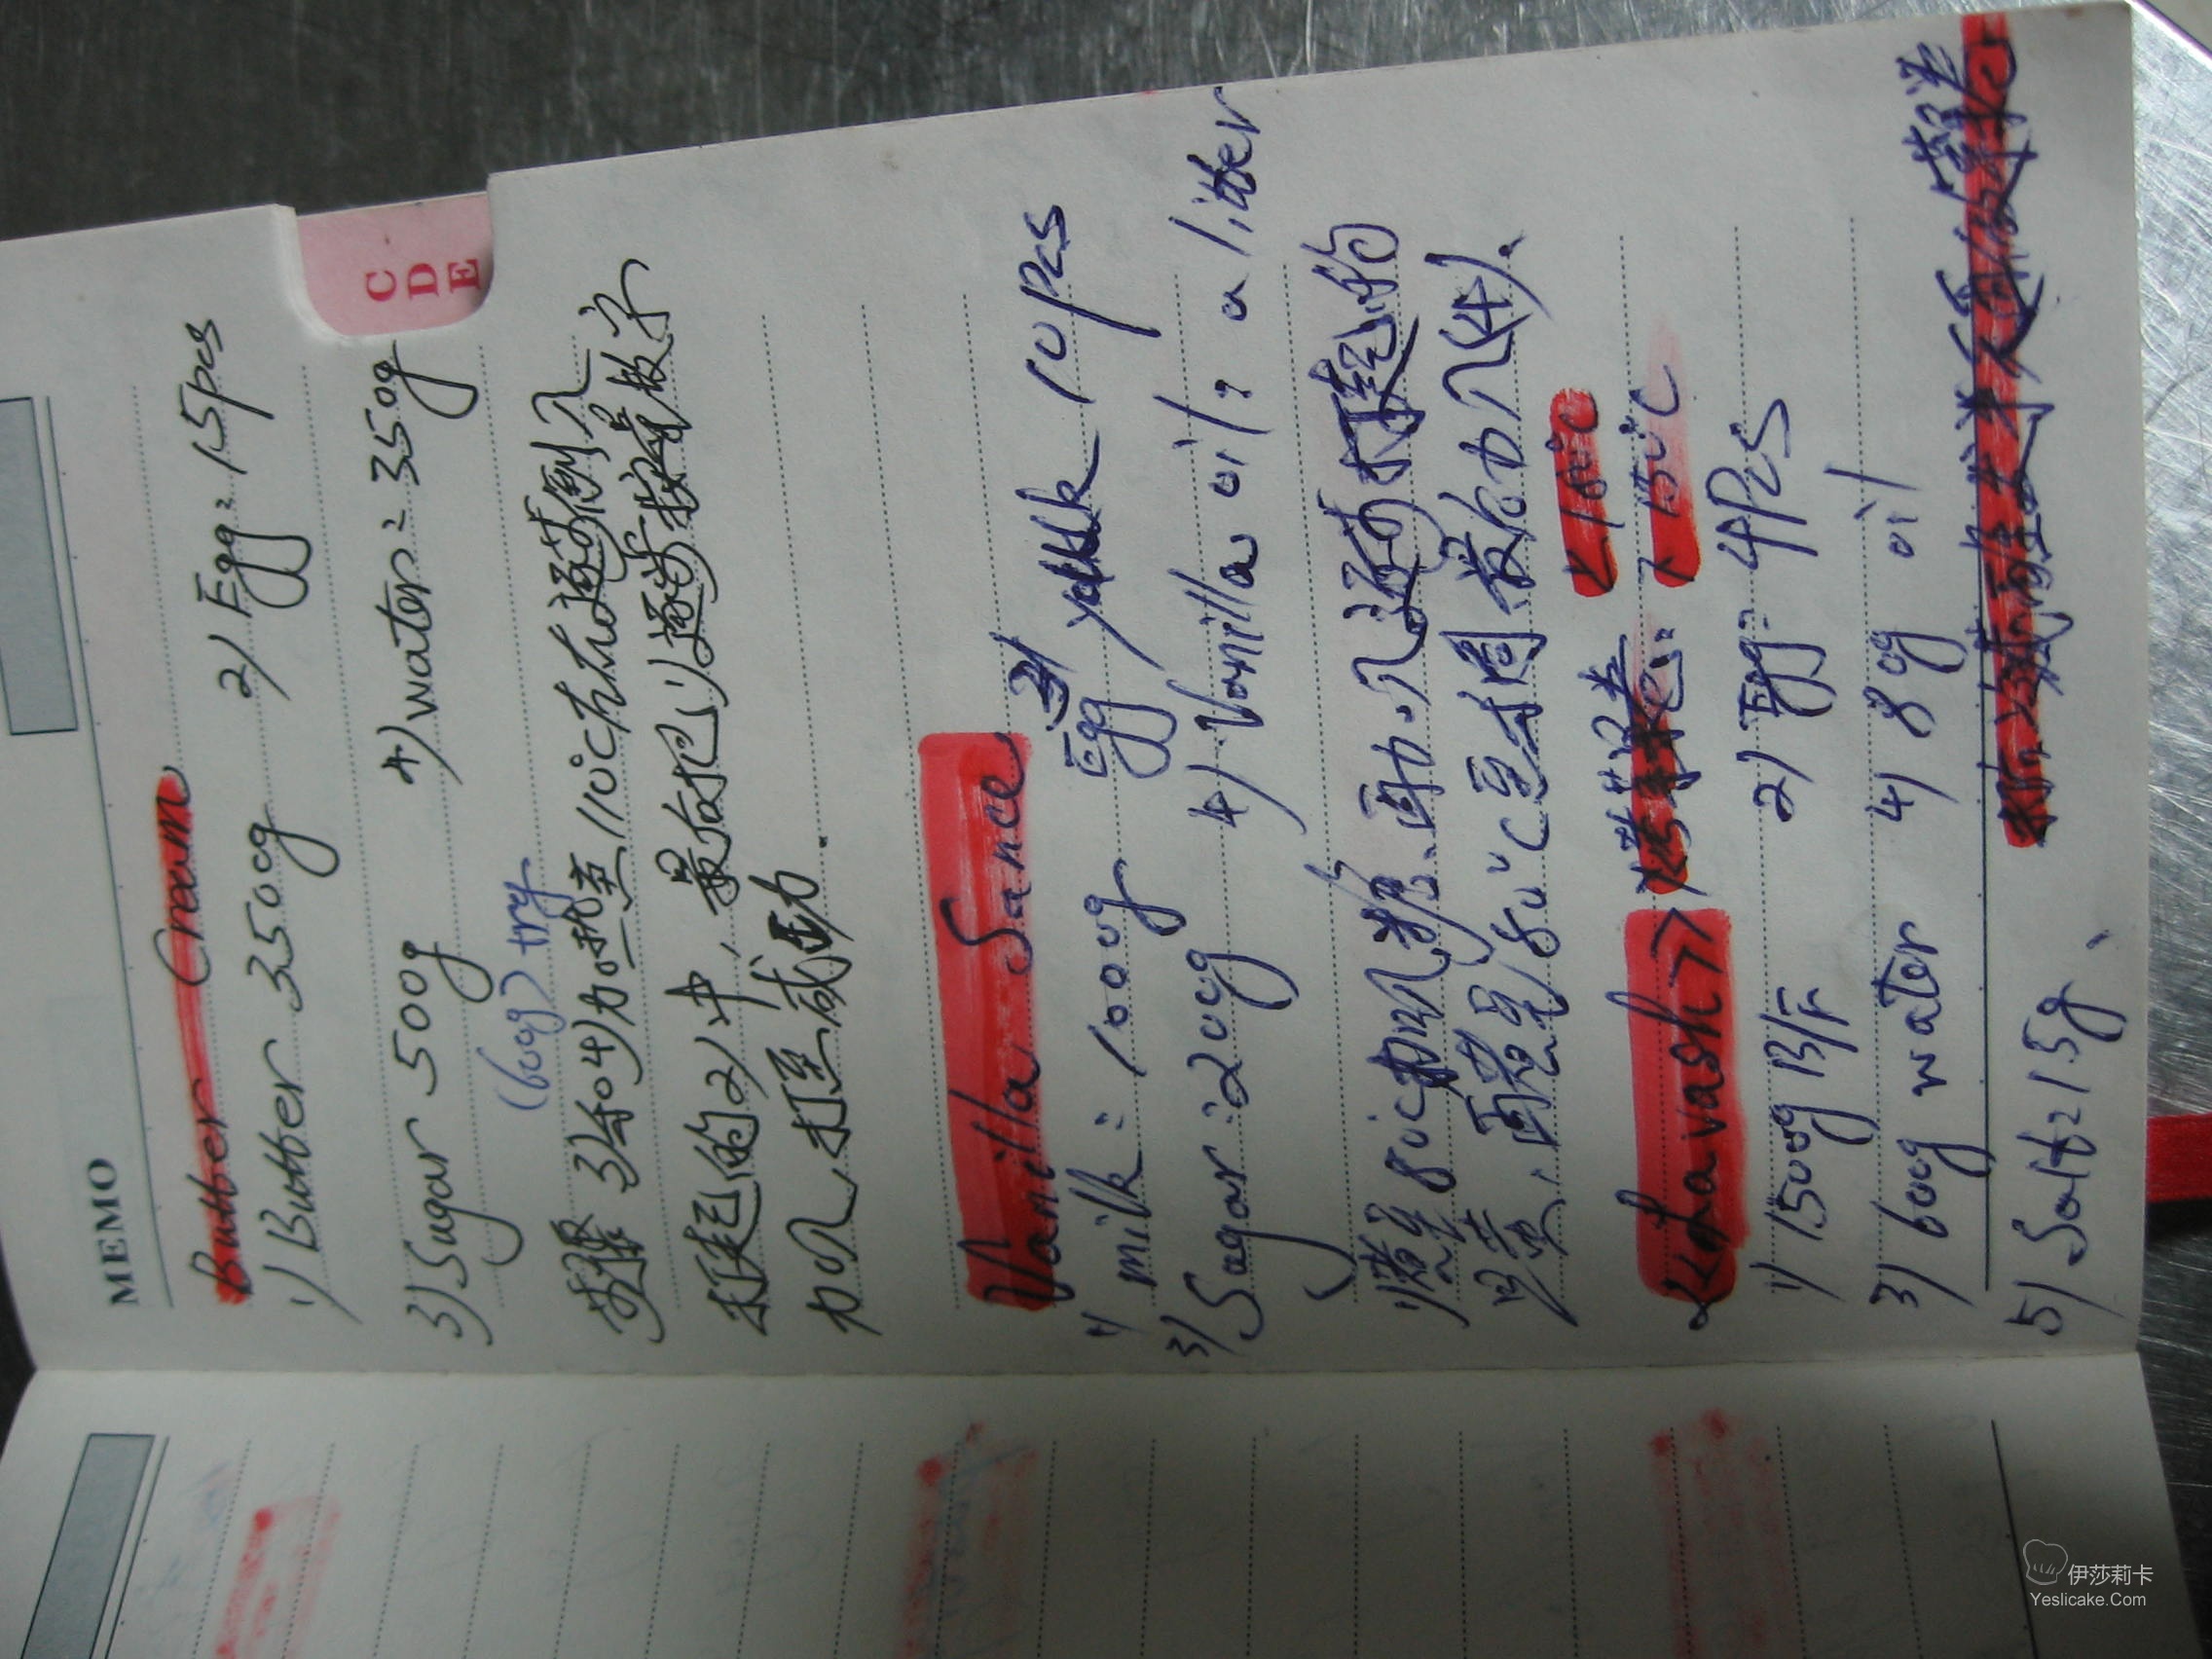 MEMO
C
D
E
Butter Cream
1) Butter 3500g 2) Egg: 15pcs
3) Sugar 500g 4) water: 350g
(600g) try
步骤 3)和4)加热至110℃左右逐步倒入
打起的2)中,最后把1)逐步按量按次
加入,打至成功.
Vanilla Sance
1) milk: 1000g 2) Egg yolk 10pcs
3) Sugar: 200g 4) Vanilla oil: a litter
煮至80℃加入 再加入逐步打起的
再煮至80℃至稠 最后加入(4).
180℃
<Lavash> 150℃
1) 1500g B/F 2) Egg: 4Pcs
3) 600g water 4) 80g oil
5) Salt: 15g、
伊莎莉卡
Yeslicake.Com